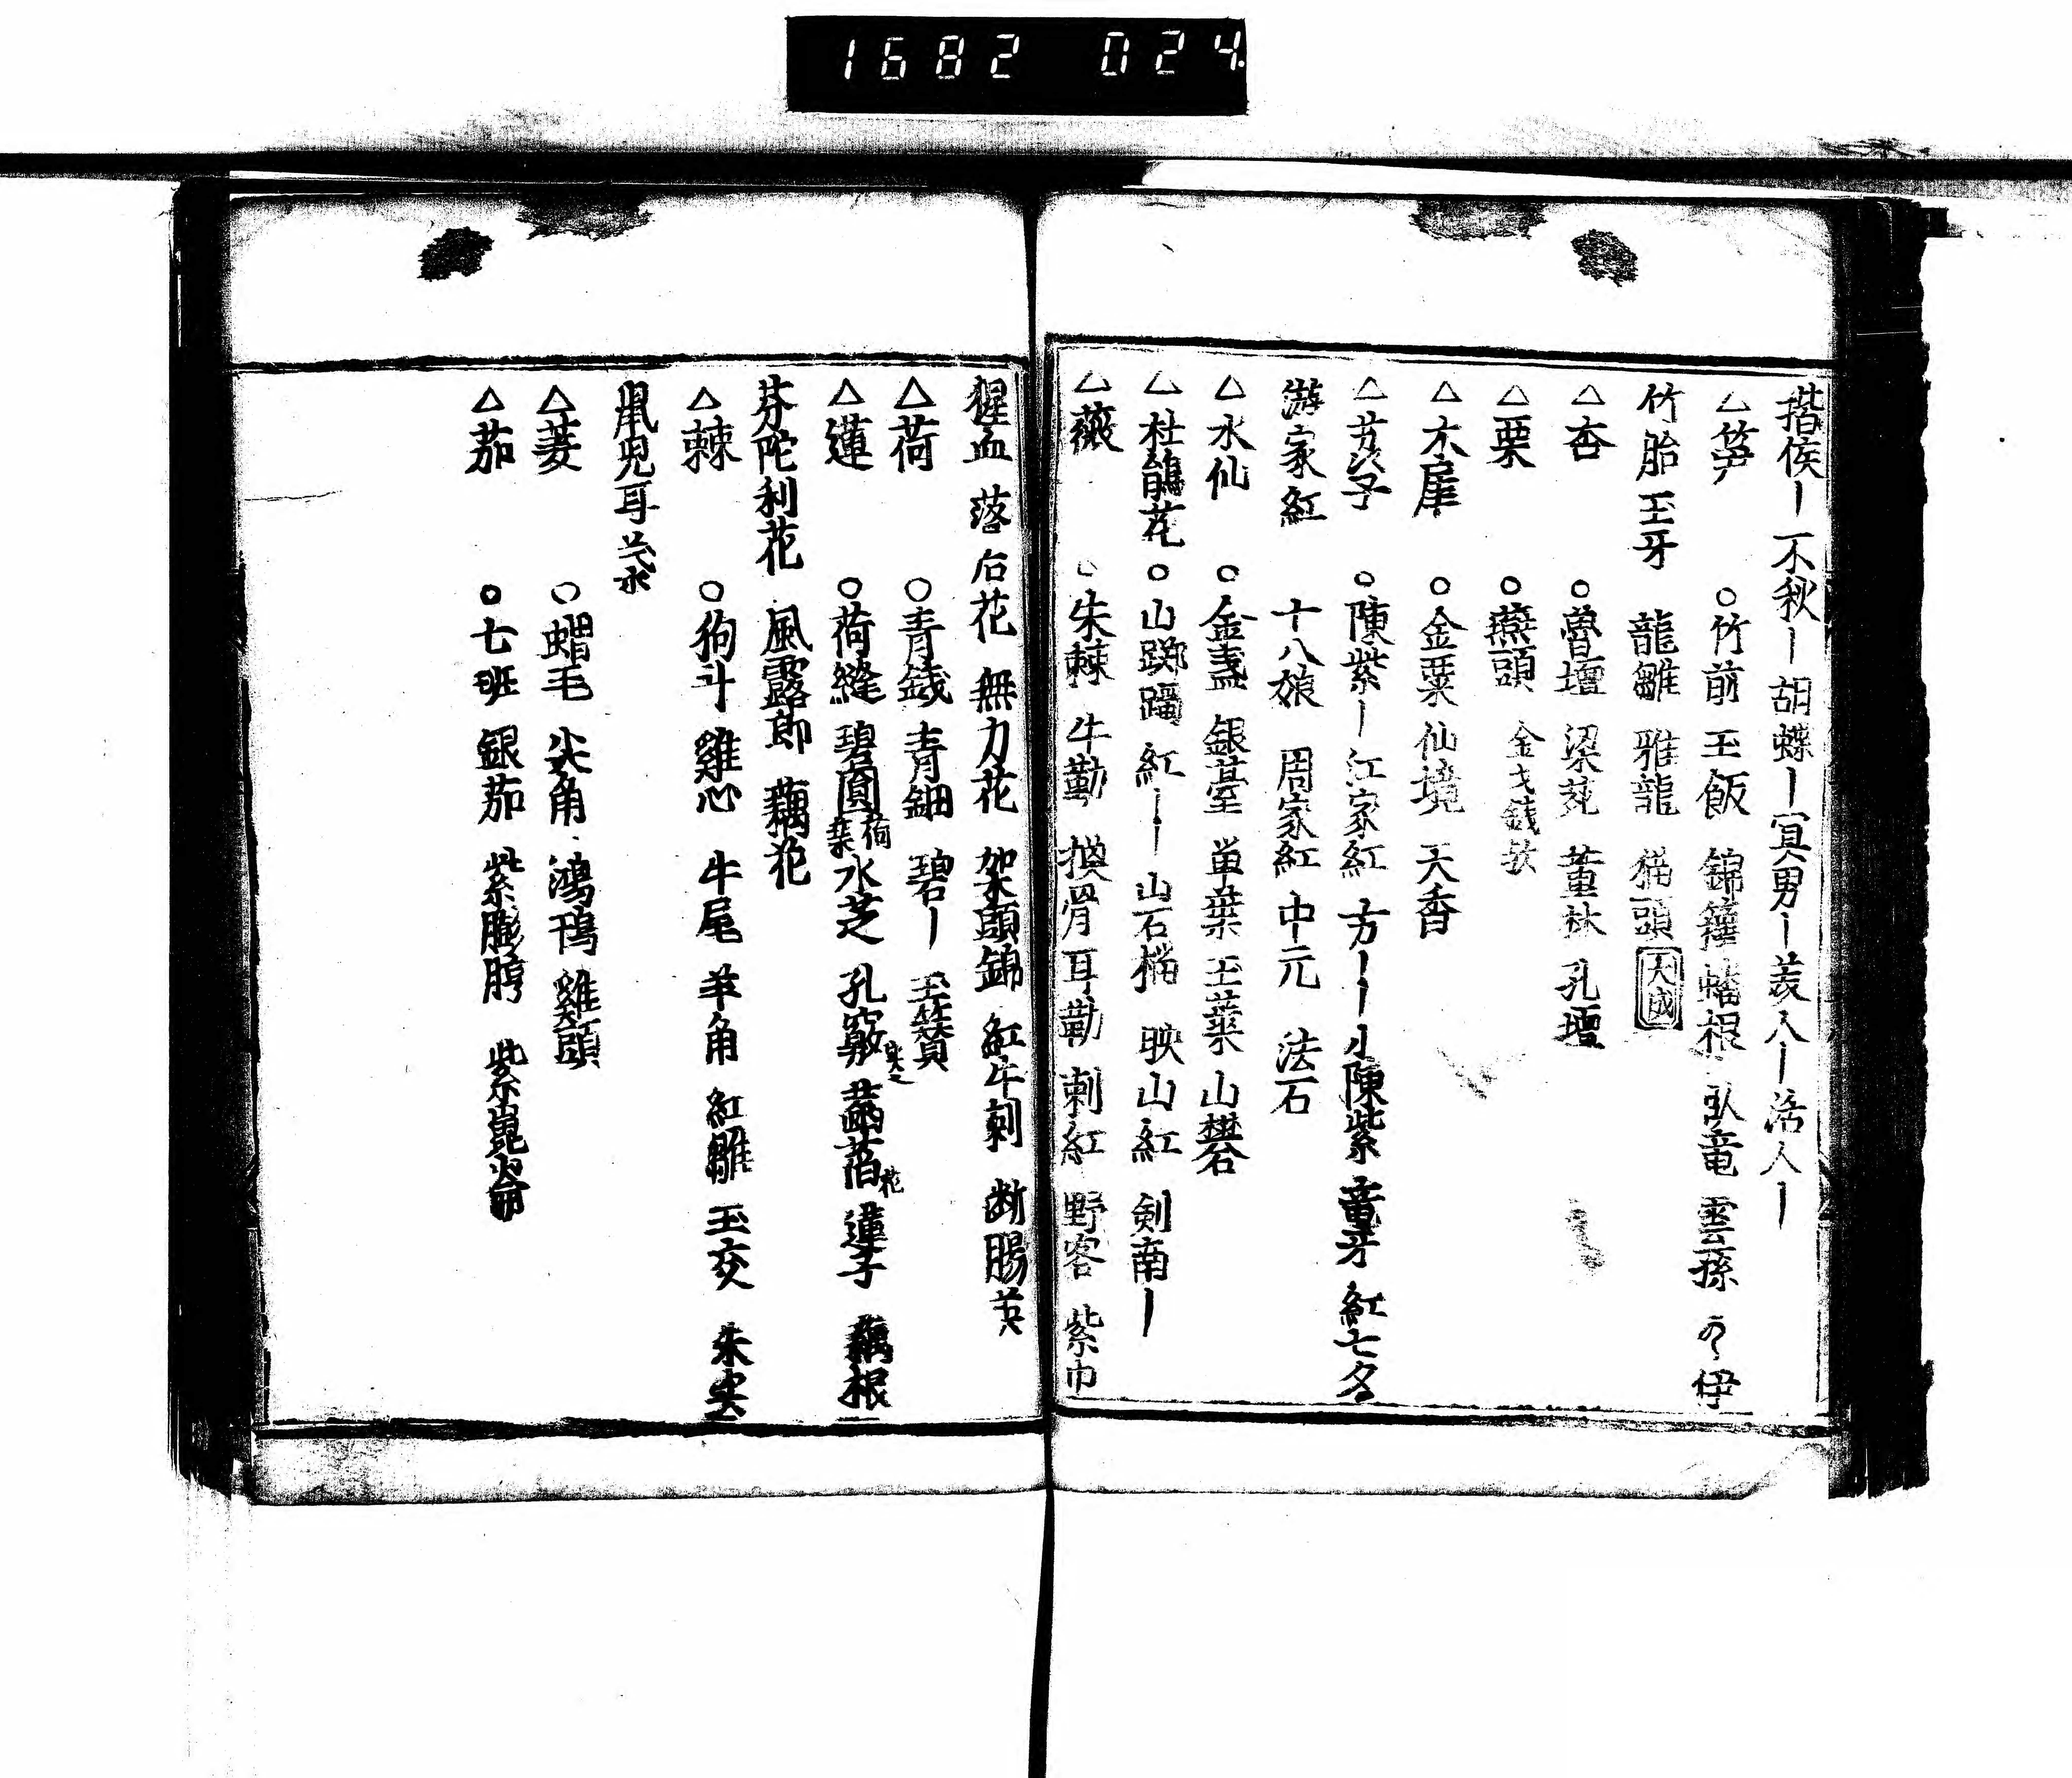 1682 024
揩侯｜不秋｜胡蝶｜冥男｜美人｜活人｜
△笋 ○竹前 玉飯 錦籜 蟠根 臥竜 雲孫 伊
竹胎 玉牙 龍雛 稚龍 猫頭 大成
△杏 ○魯壇 梁苑 董林 孔壇
△栗 ○燕頭 金
△木犀 ○金粟 仙境 天香
△茘子 ○陳紫｜江家紅 方｜｜小陳紫 竜牙 紅七夕
游家紅 十八娘 周家紅 中元 法石
△水仙 ○金盞 銀臺 単葉 玉葉 山礬
△杜鵑花 ○山躑躅 紅｜｜山石榴 映山紅 剣南｜
△薇 ○朱棘 牛勒 換骨 耳勒 刺紅 野客 紫巾
猩血 落后花 無力花 架頭錦 紅牛刺 断腸英
△荷 ○青銭 青鈿 碧｜玉簪
△蓮 ○荷縫 碧圓荷葉 水芝 孔竅 菡萏花 蓮子 藕根
芬陀利花 風露郎 藕花
△棘 ○狗斗 雞心 牛尾 羊角 紅雛 玉交 朱実
鼠兒耳
△菱 ○蝟毛 尖角 鴻鴨 雞頭
△茄 ○七班 銀茄 紫膨脝 紫崑崙